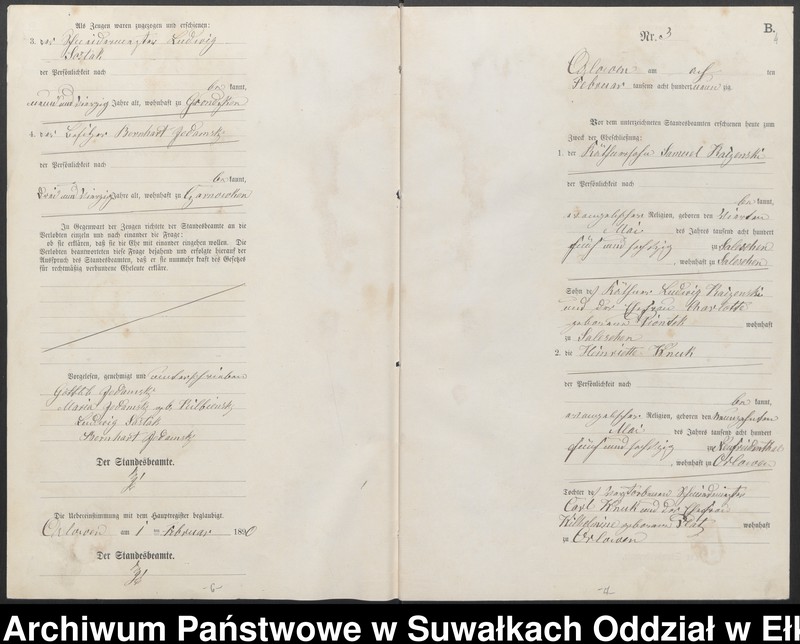 Als Zeugen waren zugezogen und erschienen:
3. der Schneidermeister Ludwig
Sostak
der Persönlichkeit nach
be kannt,
neun und vierzig Jahre alt, wohnhaft zu
4. der Besitzer Bernhart Jedamsky
der Persönlichkeit nach
be kannt,
drei und vierzig Jahre alt, wohnhaft zu Czarnowken
In Gegenwart der Zeugen richtete der Standesbeamte an die
Verlobten einzeln und nach einander die Frage:
ob sie erklären, daß sie die Ehe mit einander eingehen wollen. Die
Verlobten beantworteten diese Frage bejahend und erfolgte hierauf der
Ausspruch des Standesbeamten, daß er sie nunmehr kraft des Gesetzes
für rechtmäßig verbundene Eheleute erkläre.
Vorgelesen, genehmigt und unterschrieben
Gottlieb Jedamsky
Maria Jedamsky geb.
Ludwig Sostak
Bernhart Jedamsky
Der Standesbeamte.
Die Uebereinstimmung mit dem Hauptregister beglaubigt.
Orlowen am 1 ten Februar 1890
Der Standesbeamte.
-6-
B.
4
Nr. 3
Orlowen am acht ten
Februar tausend acht hundert neun zig
Vor dem unterzeichneten Standesbeamten erschienen heute zum
Zweck der Eheschließung:
1. der Käthnersohn Samuel
der Persönlichkeit nach
be kannt,
evangelischer Religion, geboren den vierten
Mai des Jahres tausend acht hundert
fünf und sechszig zu Saleschen
, wohnhaft zu Saleschen
Sohn des Käthner Ludwig
und der Ehefrau Charlotte
geborene Piontek wohnhaft
zu Saleschen
2. die Henriette Kneck
der Persönlichkeit nach
be kannt,
evangelischer Religion, geboren den neunzehnten
Mai des Jahres tausend acht hundert
fünf und sechszig zu
, wohnhaft zu Orlowen
Tochter des verstorbenen Schmiedemeister
Carl Kneck und der Ehefrau
Wilhelmine geborene Platz wohnhaft
zu Orlowen
Archiwum Państwowe w Suwałkach Oddział w Eł